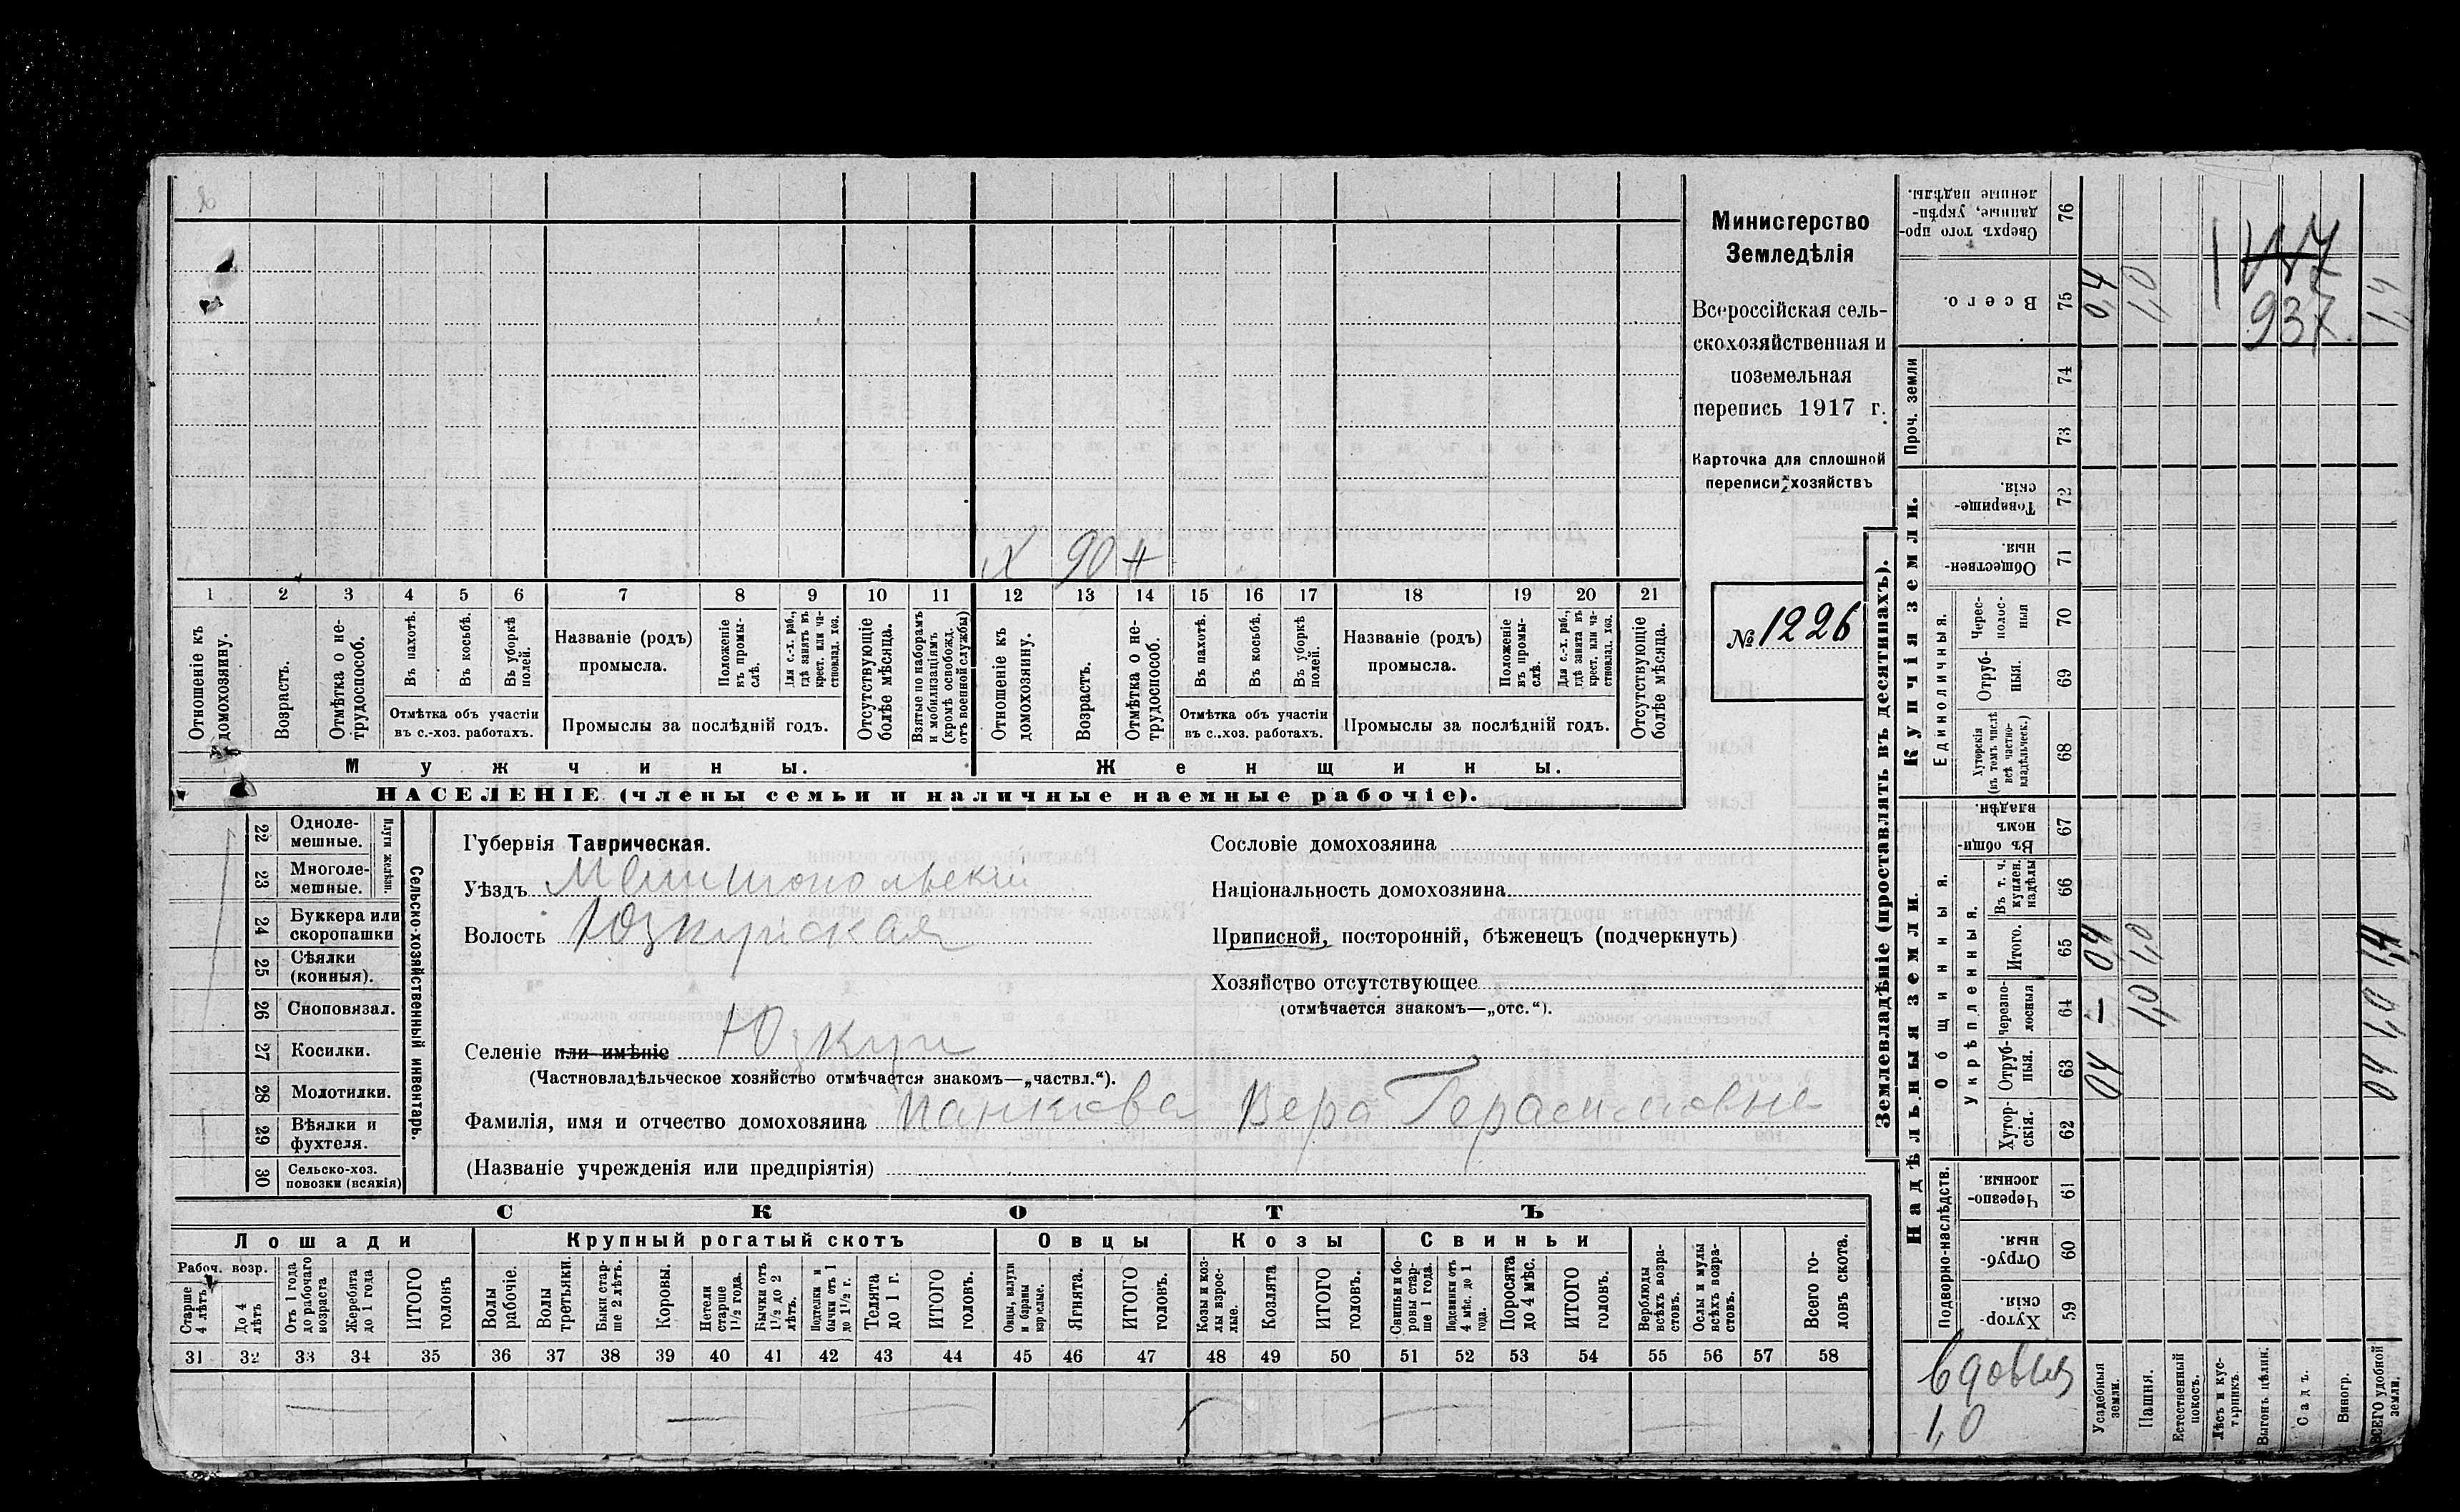 х 90 н
1 2 3 4 5 6 7 8 9 10 11 12 13 14 15 16 17 18 19 20 21
Отношеніе къ домохозяину.
Возрастъ.
Отмѣтка о не-трудоспособ.
Въ пахотѣ.
Въ косьбѣ.
Въ уборкѣ полей.
Отмѣтка объ участіи
въ с.-хоз. работахъ.
Названіе (родъ)
промысла.
Положеніе въ промы-слѣ.
Для с.-х. раб., гдѣ занятъ въ крест. или ча-стновлад. хоз.
Промыслы за послѣдній годъ.
Отсутствующіе болѣе мѣсяца.
Взятые по наборамъ и мобилизаціямъ (кромѣ освобожд. отъ военной службы)
Отношеніе къ домохозяину.
Возрастъ.
Отмѣтка о не-трудоспособ.
Въ пахотѣ.
Въ косьбѣ.
Въ уборкѣ полей.
Отмѣтка объ участіи
въ с.-хоз. работахъ.
Названіе (родъ)
промысла.
Положеніе въ промы-слѣ.
Для с.-х. раб., гдѣ занята въ крест. или ча-стновлад. хоз.
Промыслы за послѣдній годъ.
Отсутствующіе болѣе мѣсяца.
Мужчины.
Женщины.
НАСЕЛЕНІЕ (члены семьи и наличные наемные рабочіе).
Министерство
Земледѣлія
Всероссійская сель-
скохозяйственная и
поземельная
перепись 1917 г.
Карточка для сплошной
переписи хозяйствъ
№ 1226
22 Одноле-мешные.
23 Многоле-мешные.
Плуги желѣзн.
24 Буккера или скоропашки
25 Сѣялки (конныя).
26 Сноповязал.
27 Косилки.
28 Молотилки.
29 Вѣялки и фухтеля.
30 Сельско-хоз. повозки (всякія)
Сельско-хозяйственный инвентарь.
Губернія Таврическая.
Уѣздъ Мелитопольскій
Волость Юзкуйская
Селеніе или имѣніе Юзкуи
(Частновладѣльческое хозяйство отмѣчается знакомъ—„частвл.“).
Фамилія, имя и отчество домохозяина Панкова Вера Герасимовна
(Названіе учрежденія или предпріятія)
Сословіе домохозяина
Національность домохозяина
Приписной, посторонній, бѣженецъ (подчеркнуть)
Хозяйство отсутствующее
(отмѣчается знакомъ—„отс.“).
СКОТЪ
Лошади
Крупный рогатый скотъ
Овцы
Козы
Свиньи
Рабоч. возр.
Старше 4 лѣтъ
До 4 лѣтъ
Отъ 1 года до рабочаго возраста
Жеребята до 1 года
ИТОГО головъ
Волы рабочіе.
Волы третьяки.
Быки стар-ше 2 лѣтъ.
Коровы.
Нетели старше 1½ года.
Бычки отъ 1½ до 2 лѣтъ.
Подтелки и бычки отъ 1 до 1½ г.
Телята до 1 г.
ИТОГО головъ.
Овцы, валухи и бараны взрослые.
Ягнята.
ИТОГО головъ.
Козы и коз-лы взрос-лые.
Козлята
ИТОГО головъ.
Свиньи и бо-ровы стар-ше 1 года.
Подсвинки отъ 4 мѣс. до 1 года.
Поросята до 4 мѣс.
ИТОГО головъ.
Верблюды всѣхъ возра-стовъ.
Ослы и мулы всѣхъ возра-стовъ.
Всего го-ловъ скота.
31 32 33 34 35 36 37 38 39 40 41 42 43 44 45 46 47 48 49 50 51 52 53 54 55 56 57 58
Землевладѣніе (проставлять въ десятинахъ).
Купчія земли.
Надѣльныя земли.
Сверхъ того про-данные, укрѣп-ленные надѣлы. 76
Всего. 75 0,4 1,0 1,4
937
Проч. земли 74 73
Товарище-скія. 72
Обществен-ныя. 71
Единоличныя.
Черес-полос-ныя 70
Отруб-ныя. 69
Хуторскія (въ томъ числѣ всѣ частно-владѣльческ.) 68
Общинныя.
Въ общи-номъ владѣн. 67
Укрѣпленныя.
Въ т. ч. куплен. надѣлы 66
Итого. 65 04 1,0 1,4
Черезпо-лосныя 64 — 1,0 1,0
Отруб-ныя. 63 04 04
Хутор-скія. 62
Подворно-наслѣдств.
Черезпо-лосныя. 61
Отруб-ныя. 60
Хутор-скія 59
вдовия
1,0
Усадебныя земли.
Пашня.
Естественный покосъ.
Лѣсъ и кус-тарникъ.
Выгонъ цѣлин.
Садъ.
Виногр.
ВСЕГО удобной земли.